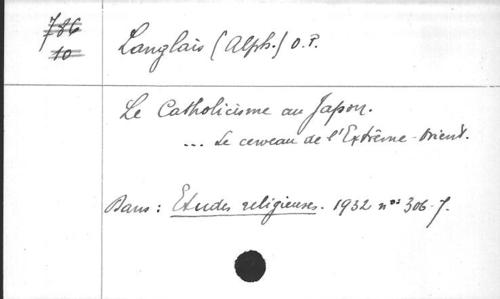 786
10
Langlais (Alph.) O.P.
Le Catholicisme au Japon.
... Le cerveau de l'Extrême-Orient.
Dans : Etudes religieuses. 1932 nos 306-7.